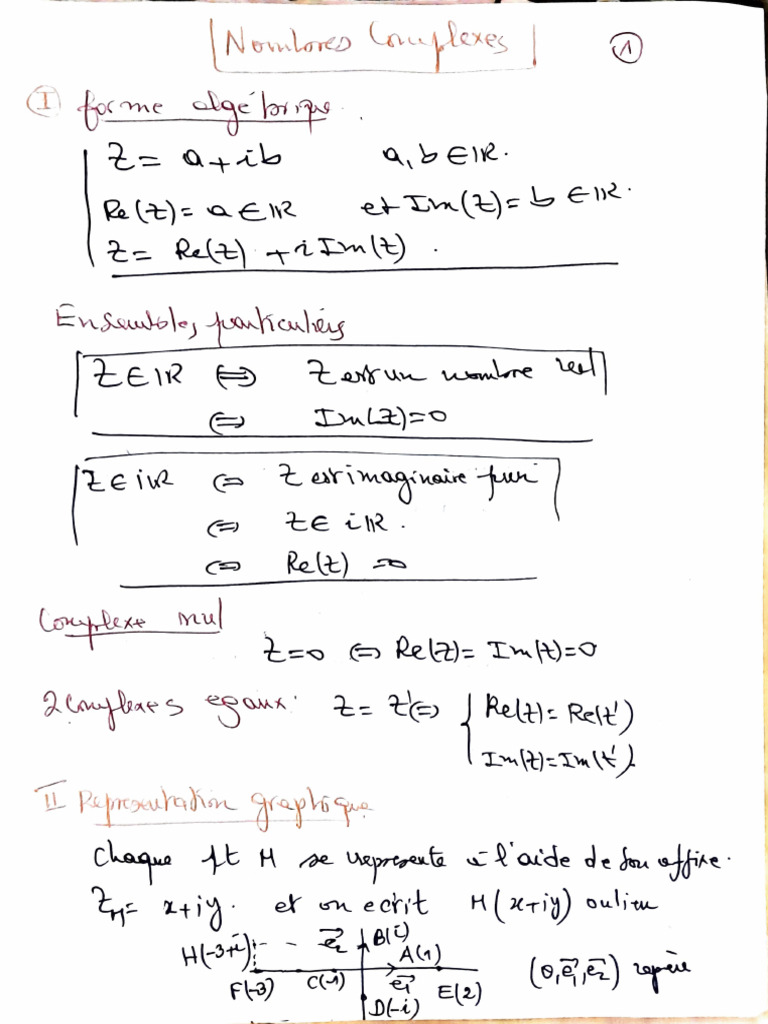 Nombres Complexes
①
Ⓘ forme algébrique.
Z = a + ib a, b ∈ IR.
Re(Z) = a ∈ IR et Im(Z) = b ∈ IR.
Z = Re(Z) + i Im(Z).
Ensembles particuliers
Z ∈ IR ⇔ Z est un nombre reel
⇔ Im(Z)=0
Z ∈ iIR ⇔ Z est imaginaire pur
⇔ Z ∈ iIR.
⇔ Re(Z) = 0
Complexe nul
Z=0 ⇔ Re(Z) = Im(Z)=0
2 Complexes egaux: Z = Z' ⇔ { Re(Z) = Re(Z')
Im(Z) = Im(Z').
II Representation graphique
Chaque pt M se represente à l'aide de son affixe.
Z_M = x+iy. et on ecrit M(x+iy) au lieu
H(-3+i) e₂⃗ B(i) A(1)
F(-3) C(-1) e₁⃗ E(2) (0, e₁⃗, e₂⃗) repère
D(-i)